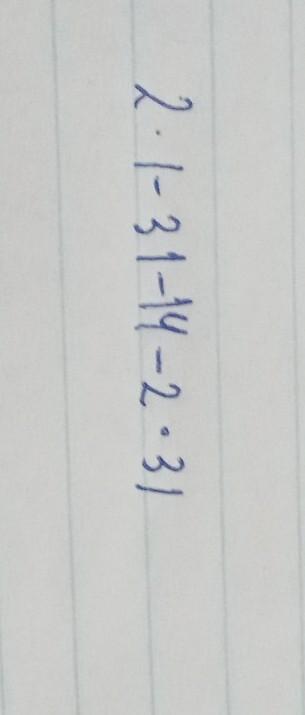 2 · |-3|-|4-2·3|